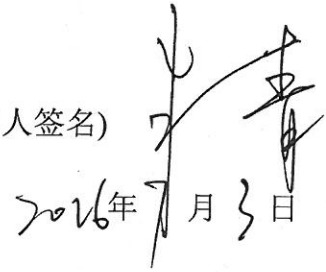 人签名) 青
2026年7月3日